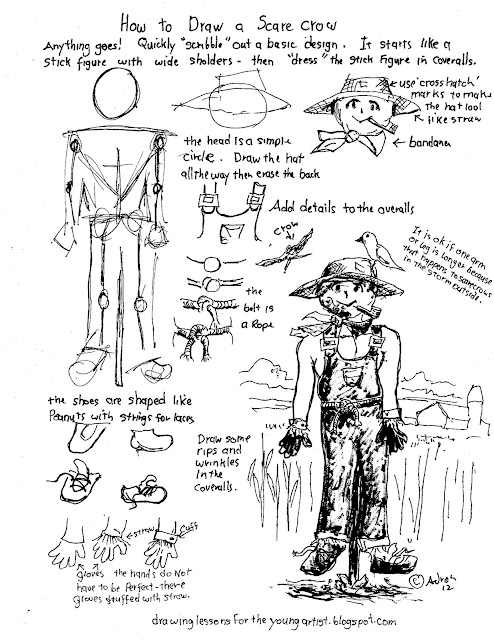 How to Draw a Scare Crow
Anything goes! Quickly "scribble" out a basic design. It starts like a
stick figure with wide sholders - then "dress" the stick figure in coveralls.
use "cross hatch"
marks to make
the hat look
like straw
bandanna
the head is a simple
circle. Draw the hat
all the way then erase the back
Add details to the overalls
crow
It is ok if one arm
or leg is longer because
that happens to scarecrows
in the storm outside.
the
belt is
a Rope
the shoes are shaped like
Peanuts with strings for laces
Draw some
rips and
wrinkles
in the
coveralls.
straw
cuff
Gloves the hands do Not
have to be Perfect-there
Gloves stuffed with straw.
© Adron
12
drawing lessons for the young artist.blogspot.com